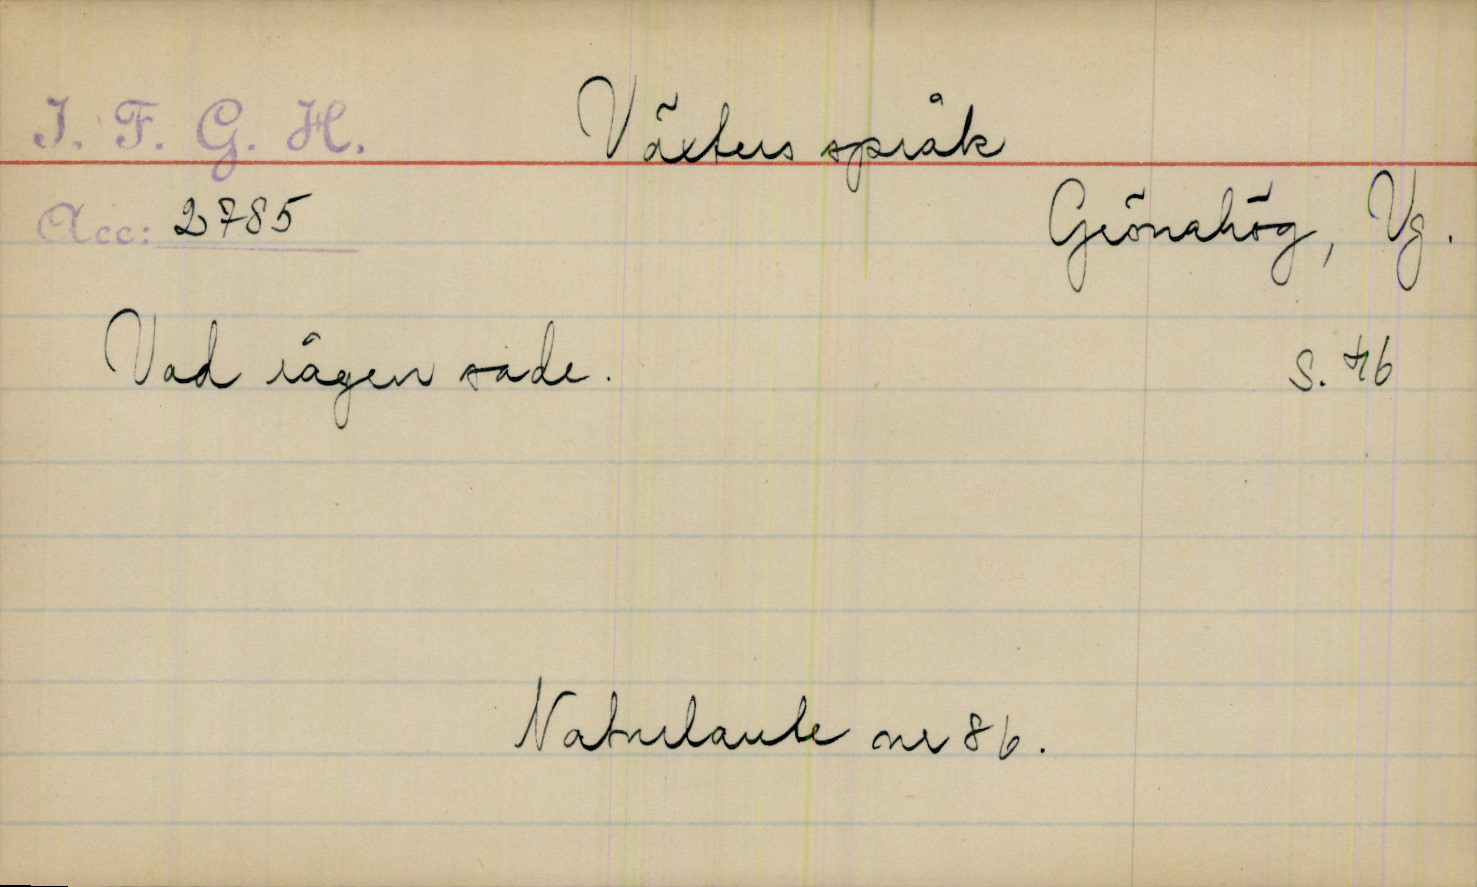 I. F. G. H.
Växters språk
Acc: 2785
Grönahög, Vg.
Vad rågen sade.
S. 46
Naturlaute nr 86.